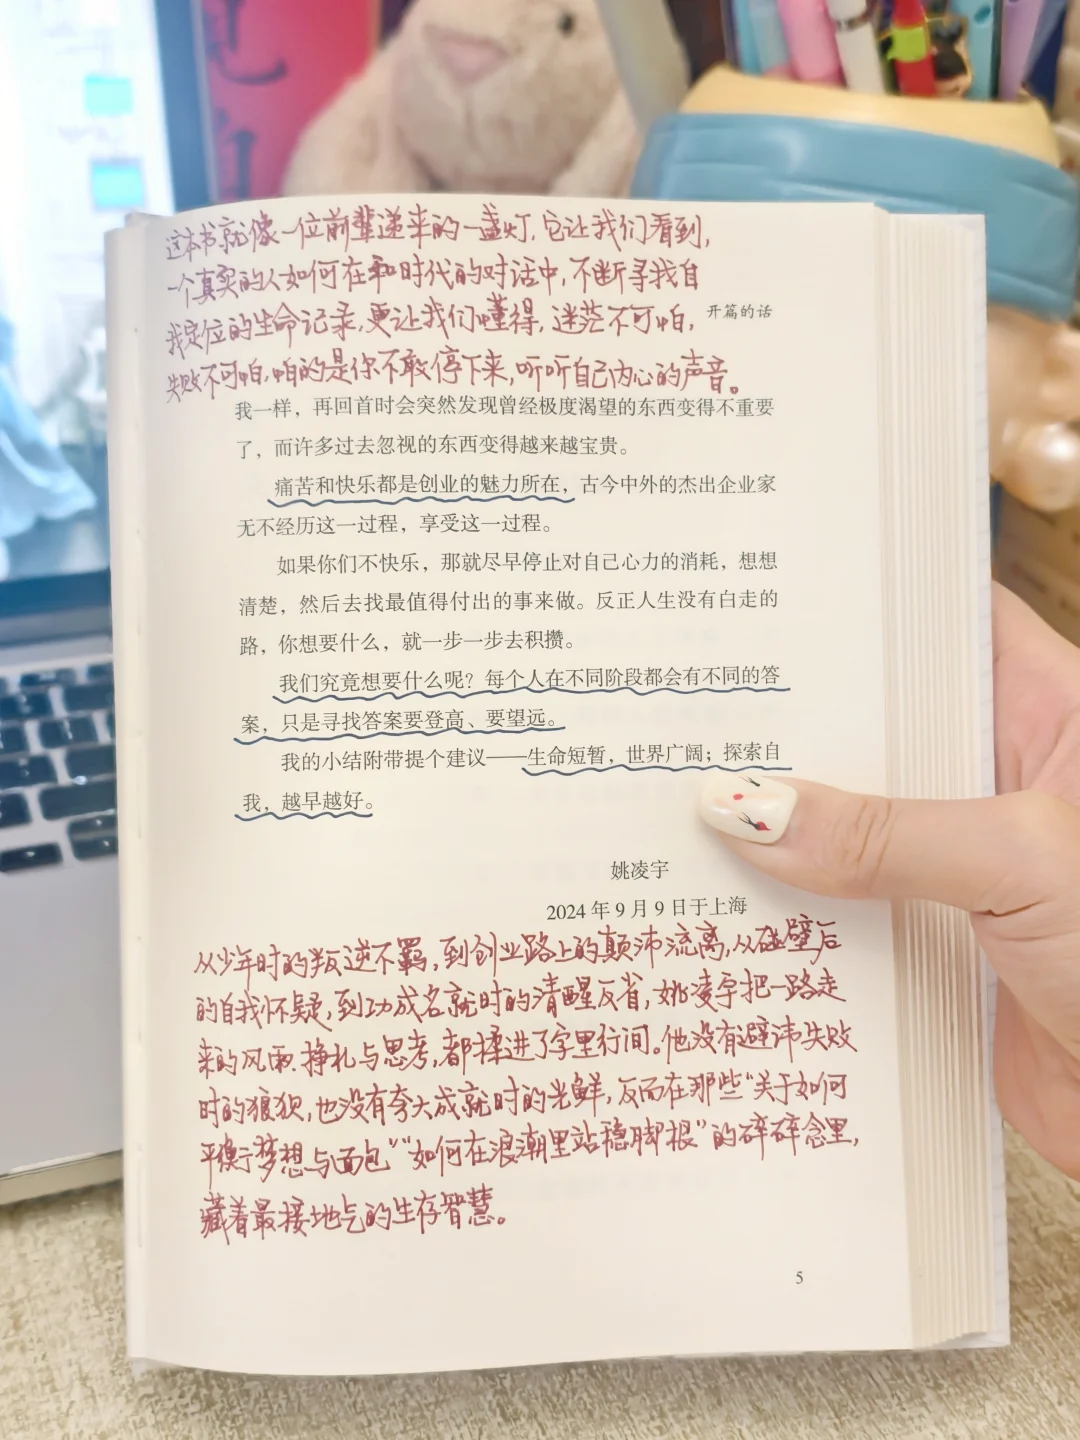 这本书就像一位前辈递来的一盏灯,它让我们看到,
一个真实的人如何在和时代的对话中,不断寻找自
我定位的生命记录,更让我们懂得,迷茫不可怕,
开篇的话
失败不可怕,怕的是你不敢停下来,听听自己内心的声音。
我一样，再回首时会突然发现曾经极度渴望的东西变得不重要
了，而许多过去忽视的东西变得越来越宝贵。
痛苦和快乐都是创业的魅力所在，古今中外的杰出企业家
无不经历这一过程，享受这一过程。
如果你们不快乐，那就尽早停止对自己心力的消耗，想想
清楚，然后去找最值得付出的事来做。反正人生没有白走的
路，你想要什么，就一步一步去积攒。
我们究竟想要什么呢？每个人在不同阶段都会有不同的答
案，只是寻找答案要登高、要望远。
我的小结附带提个建议——生命短暂，世界广阔；探索自
我，越早越好。
姚凌宇
2024 年 9 月 9 日于上海
从少年时的叛逆不羁,到创业路上的颠沛流离,从碰壁后
的自我怀疑,到功成名就时的清醒反省,姚凌宇把一路走
来的风雨、挣扎与思考,都揉进了字里行间。他没有避讳失败
时的狼狈,也没有夸大成就时的光鲜,反而在那些"关于如何
平衡梦想与面包""如何在浪潮里站稳脚根"的碎碎念里,
藏着最接地气的生存智慧。
5